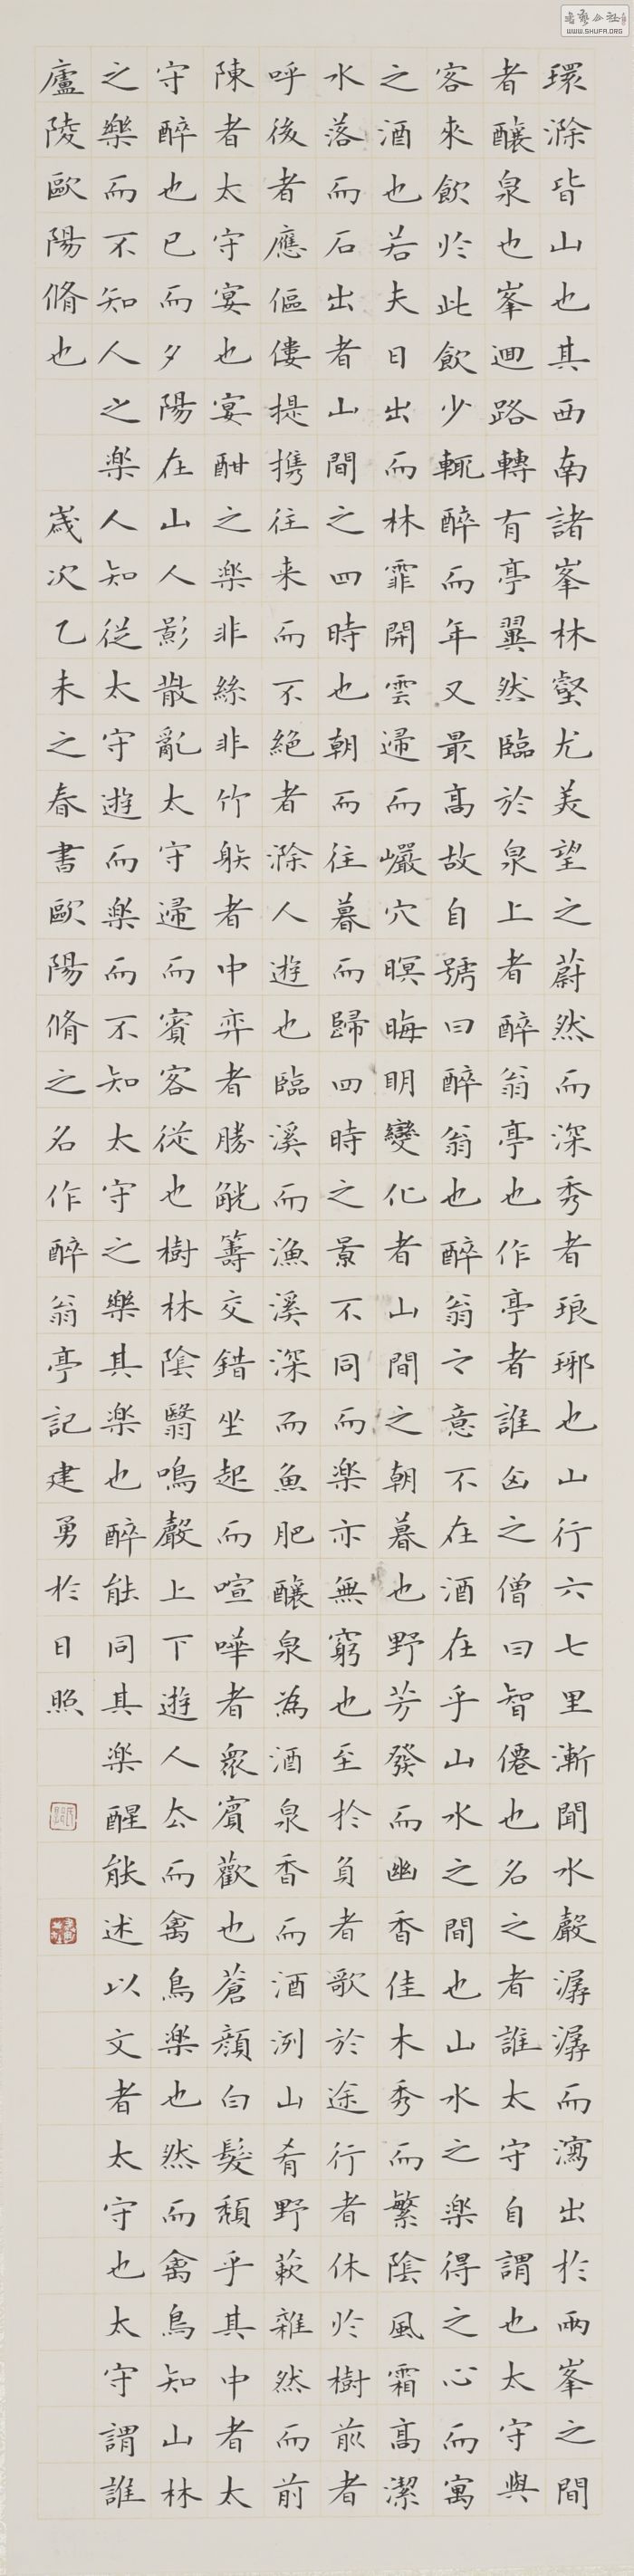 環滁皆山也其西南諸峯林壑尤美望之蔚然而深秀者琅琊也山行六七里漸聞水聲潺潺而瀉出於兩峯之間
者釀泉也峯迴路轉有亭翼然臨於泉上者醉翁亭也作亭者誰山之僧曰智僊也名之者誰太守自謂也太守與
客來飲於此飲少輒醉而年又最高故自號曰醉翁也醉翁之意不在酒在乎山水之間也山水之樂得之心而寓
之酒也若夫日出而林霏開雲歸而巖穴暝晦明變化者山間之朝暮也野芳發而幽香佳木秀而繁陰風霜高潔
水落而石出者山間之四時也朝而往暮而歸四時之景不同而樂亦無窮也至於負者歌於途行者休於樹前者
呼後者應傴僂提携往来而不絕者滁人遊也臨溪而漁溪深而魚肥釀泉為酒泉香而酒洌山肴野蔌雜然而前
陳者太守宴也宴酣之樂非絲非竹射者中弈者勝觥籌交錯坐起而喧嘩者衆賓歡也蒼顏白髮頹乎其中者太
守醉也已而夕陽在山人影散亂太守歸而賓客從也樹林陰翳鳴聲上下遊人去而禽鳥樂也然而禽鳥知山林
之樂而不知人之樂人知從太守遊而樂而不知太守之樂其樂也醉能同其樂醒能述以文者太守也太守謂誰
廬陵歐陽脩也 歲次乙未之春書歐陽脩之名作醉翁亭記建勇於日照
WWW.SHUFA.ORG